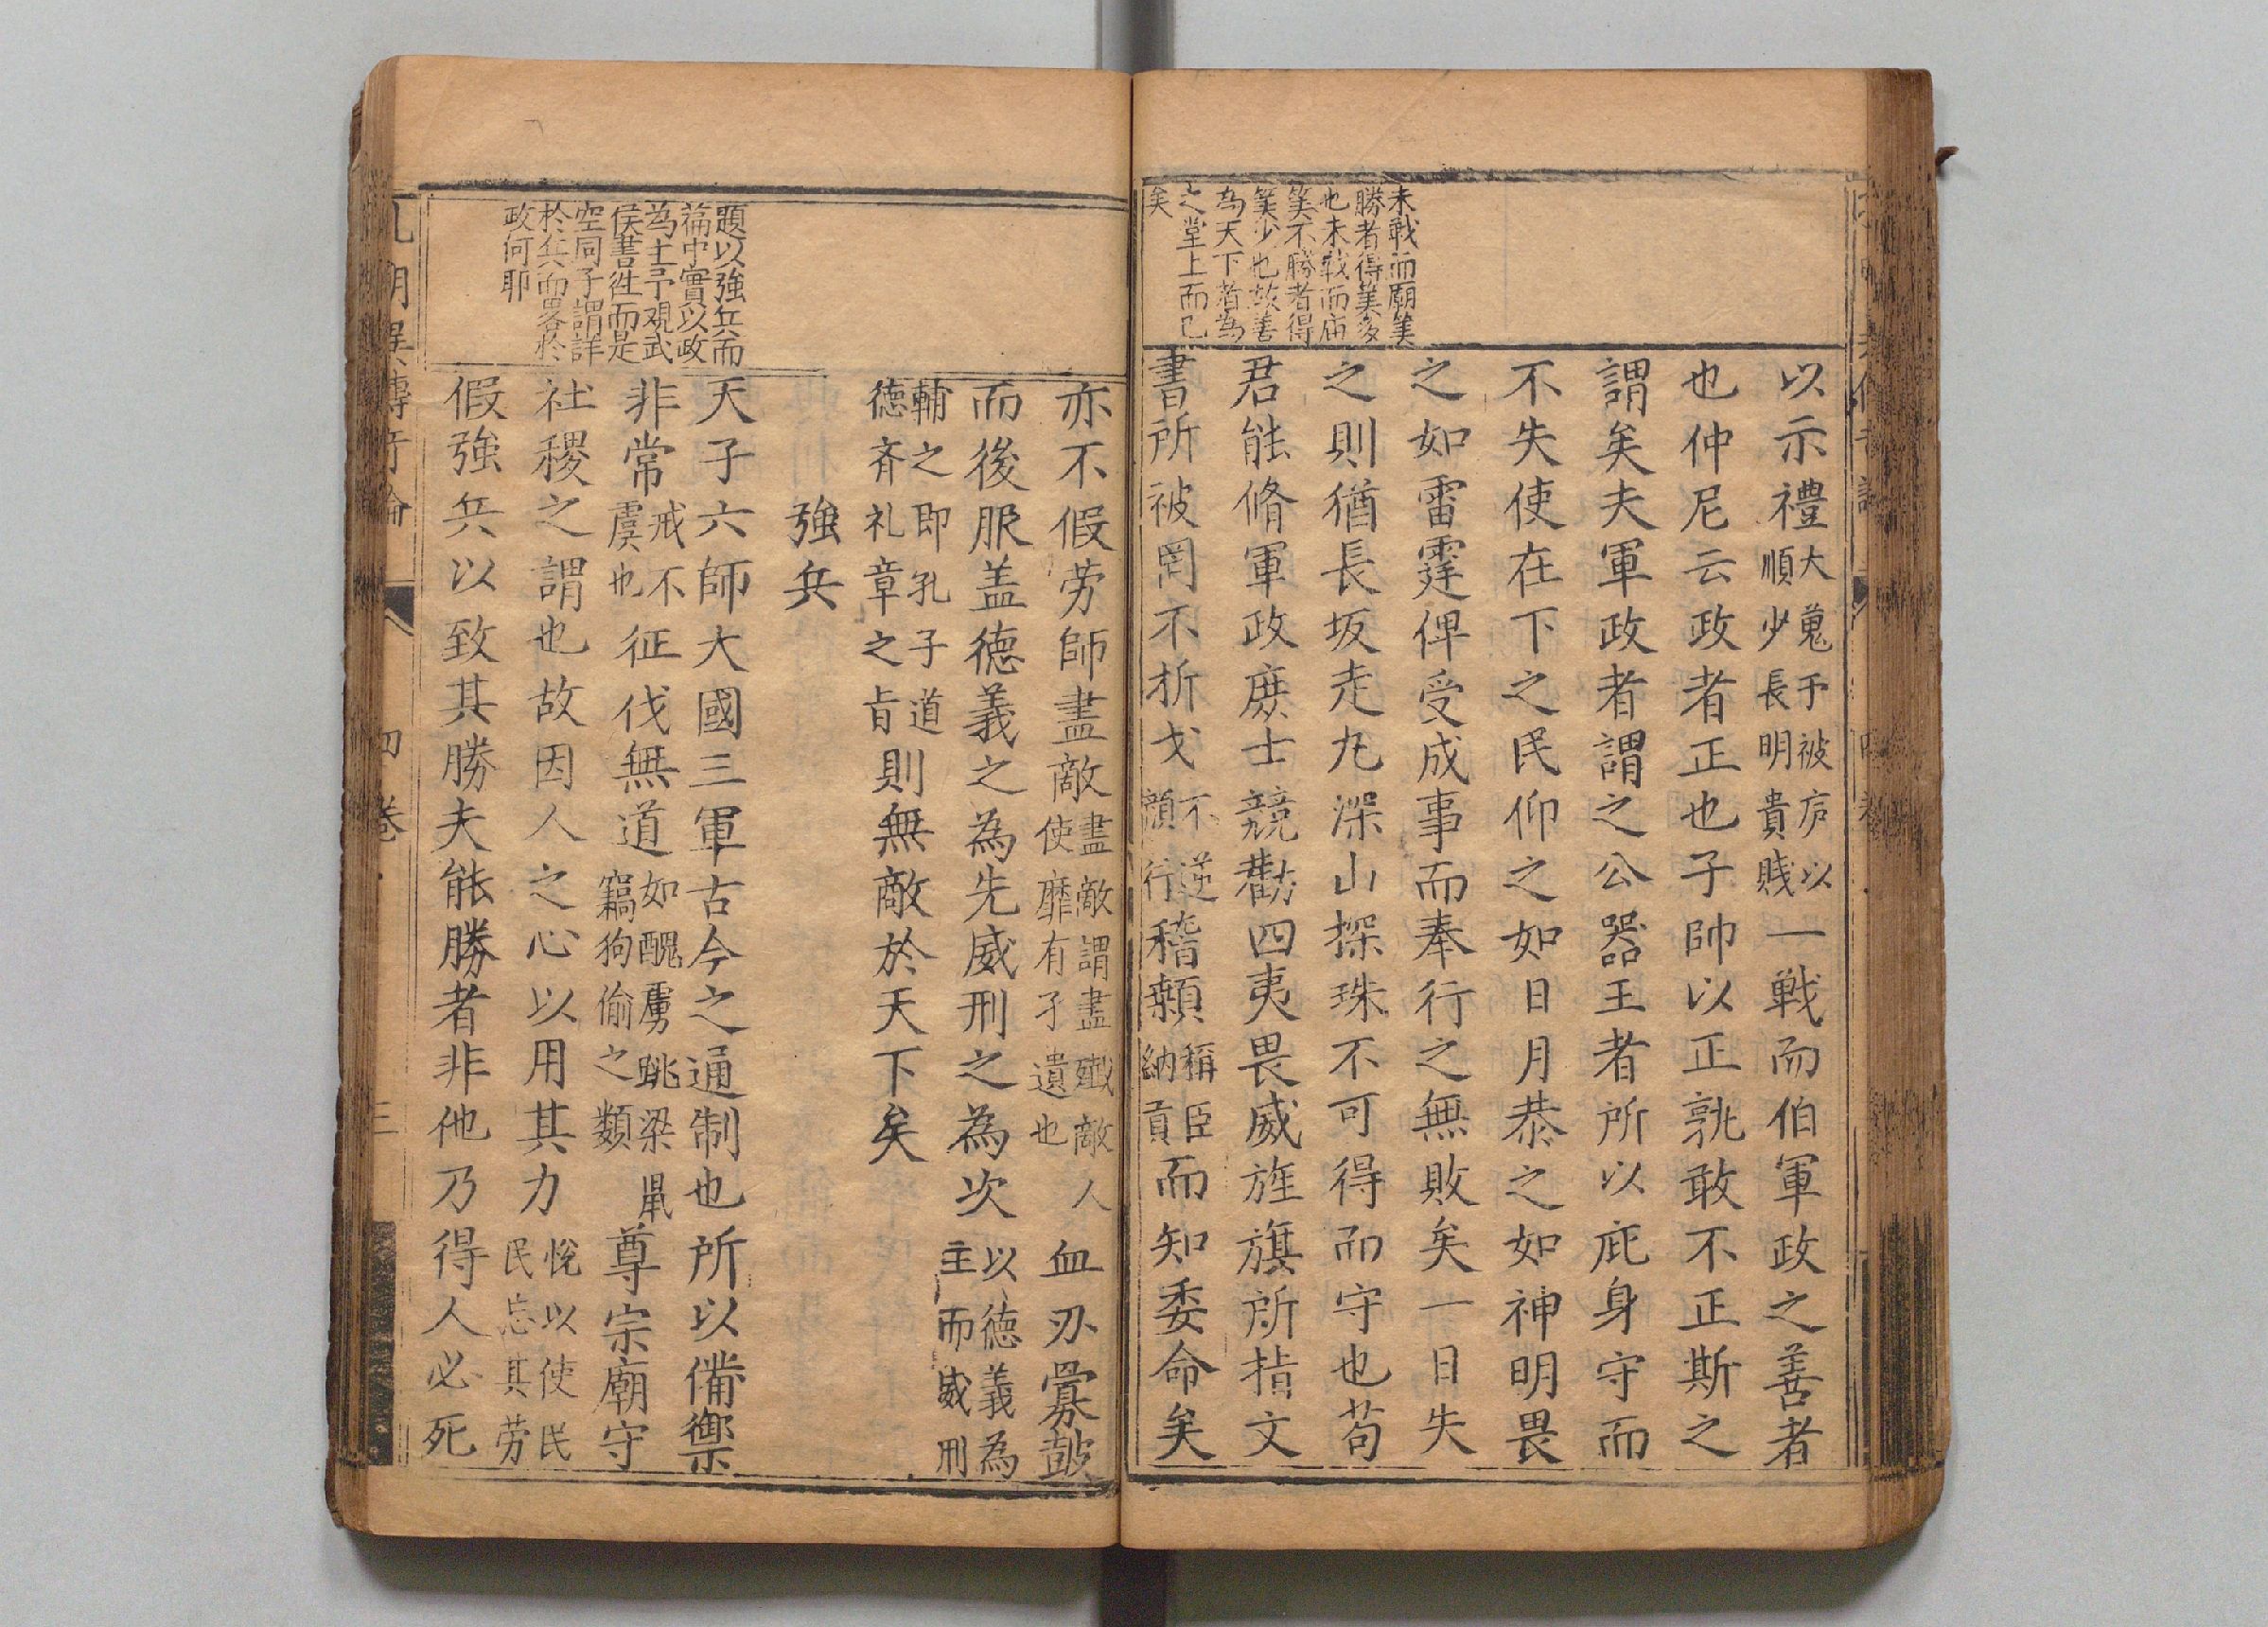 未戰而廟筭
勝者得筭多
也未戰而庙
筭不勝者得
筭少也故善
為天下者為
之堂上而已
矣
以示禮大蒐予被庐以順少長明貴賤一戰而伯軍政之善者
也仲尼云政者正也子帥以正孰敢不正斯之
謂矣夫軍政者謂之公器王者所以庇身守而
不失使在下之民仰之如日月恭之如神明畏
之如雷霆俾受成事而奉行之無敗矣一日失
之則猶長坂走丸深山探珠不可得而守也苟
君能脩軍政庶士競勸四夷畏威旌旗所指文
書所被罔不折戈不逆顏行稽顙稱臣納貢而知委命矣
亦不假劳師盡敵盡敵謂盡殲敵人使靡有孑遺也血刃寡皷
而後服盖德義之為先威刑之為次以德義為主而威刑
輔之即孔子道德斉礼章之㫖則無敵於天下矣
強兵
題以強兵而
篇中實以政
為主予观武
侯書徃而是
空同子謂詳
於兵而畧於
政何耶
天子六師大國三軍古今之通制也所以備禦
非常戒不虞也征伐無道如醜虜跳梁鼠竊狗偷之類尊宗廟守
社稷之謂也故因人之心以用其力悅以使民民忘其劳
假強兵以致其勝夫能勝者非他乃得人必死
四卷
三